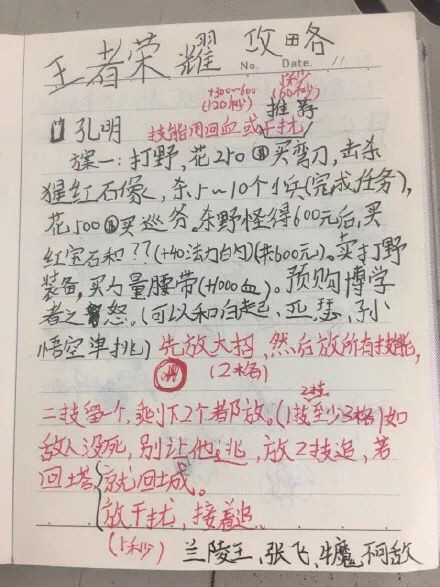 王者荣耀 攻略
No. Date. 11
+300~600 15秒
(120秒) (60秒)
推荐
孔明 技能用回血或干扰
方案一:打野,花250买弯刀,击杀
猩红石像,杀5~10个小兵(完成任务),
花500买巡务。杀野怪得600元后,买
红宝石和??(+40法力白闪)(共600元)。卖打野
装备,买力量腰带(+1000血)。预购博学
者之怒。(可以和白起、亚瑟、孙
悟空单挑)先放大招,然后放所有技能,
(2格)
二技留一个,剩下2个都放。(1技至少3格)如
2技
敌人没死,别让他逃,放2技追,若
回塔 就回城。
放干扰,接着追。
(5秒) 兰陵王、张飞、牛魔、不可敌